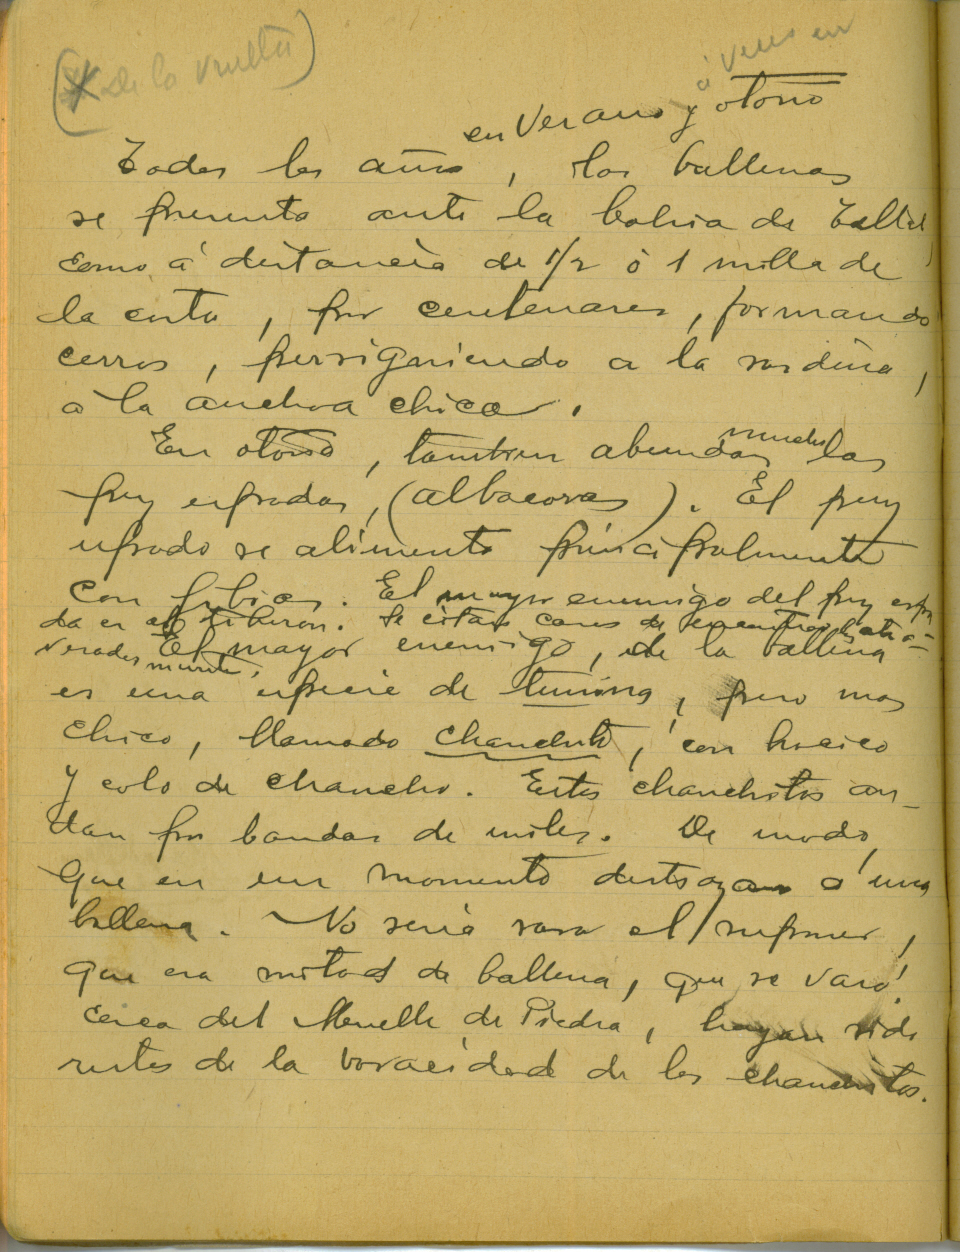 (* De la vuelta)
á veces en
en Verano y otoño
Todos los años, las ballenas
se presenta ante la bahia de Taltal
como á distancia de 1/2 ó 1 milla de
la costa, por centenares, formando
cerros, persiguiendo a la sardina,
a la anchoa chica.
En otoño, tambien abundan mucho las
pez espadas, (albacoras). El pez
espada se alimenta principalmente
con jibias. El mayor enemigo del pez espa
da es el tiburon. Se éstas casos de encontrarlos atra-
verados muerte.
El mayor enemigo, de la ballena
es una especie de tunina, pero mas
chico, llamado chanchito, con hocico
y cola de chancho. Estos chanchitos an-
dan por bandas de miles. De modo,
que en un momento destrozan á una
ballena. No seria raro el suponer,
que esa mitad de ballena, que se varó
cerca del Muelle de Piedra, hayan sido
restos de la voracidad de los chanchitos.